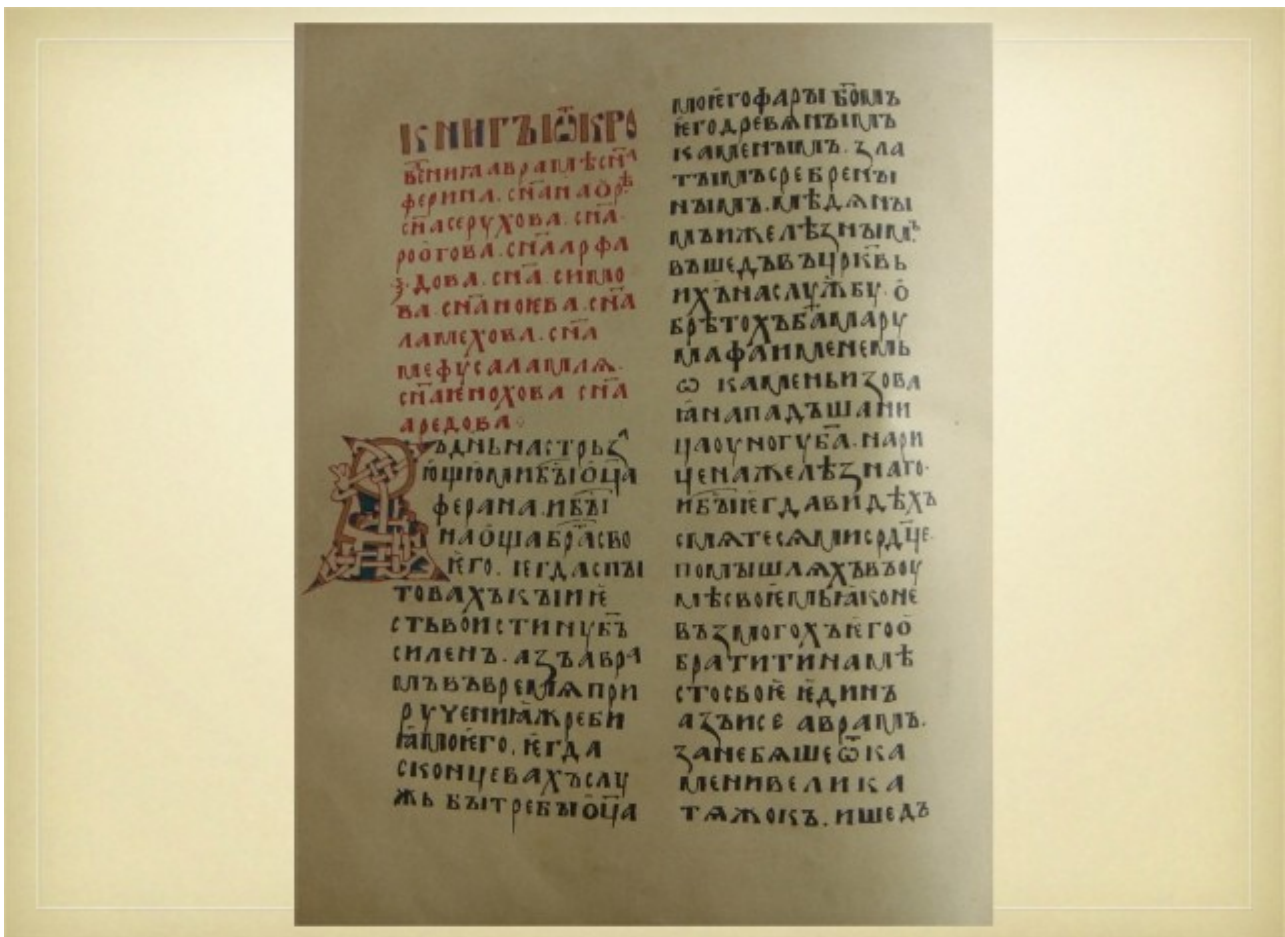 КНИГЪІѾКРО
ВЕНИꙖАВРАМЛѢСН҃А
ФЕРИНА. СН҃АНАОРѢ
СН҃АСЕРУХОВА. СН҃А.
РООГОВА. СН҃ААРФА
ѮДОВА. СН҃А. СИМО
ВА. СН҃АНОѤВА. СН҃А
ЛАМЕХОВА. СН҃А
МЕФУСАЛАМЛѦ.
СН҃АѤНОХОВА СН҃А
АРЕДОВА
ВЪДН҃ЬНАСТРЬꙀ
ꙖЮЩЮМИБЪІОЦ҃А
ФЕРАНА.ИБЪІ
НАОЦ҃АБРА҃СВО
ѤГО. ѤГДАСПЪІ
ТОВАХЪКЪІИѤ
СТЬВОИСТИНУБ҃Ъ
СИЛЕНЪ. АꙀЪАВРА
МЪВЪВРЕМѦПРИ
РУЧЕНИꙖЖРЕБИ
ꙖМОѤГО. ѤГДА
СКОНЦЕВАХЪСЛУ
ЖЬБЫТРЕБЪІОЦ҃А
МОѤГОФАРЪІ БО҃МЪ
ѤГОДРЕВѦНЪІМЪ
КАМЕНЪІМЪ. ꙀЛА
ТЪІМЪСРЕБРЕНЪІ
НЪІМЪ. МѢДѦНЪІ
МЪИЖЕЛѢꙀНЪІМЪ.
ВЪШЕДЪВЪЦР҃КВЬ
ИХЪНАСЛУЖБУ. О
БРѢТОХЪБ҃АМАРУ
МАФАИМЕНЕМЬ
Ѡ КАМЕНЬИꙀОВА
ꙖНАПАДЪШАНИ
ЦАОУНОГУБ҃А. НАРИ
ЦЕНАЖЕЛѢꙀНАГО.
ИБЪІѤГДАВИДѢХЪ
СМѦТЕСѦМИСРДЦЕ.
ПОМЫШЛѦХЪВЪОУ
МѢСВОѤМЬꙖКОНЕ
ВЪꙀМОГОХЪѤГОО
БРАТИТИНАМѢ
СТОСВОѤ ѤДИНЪ
АꙀЪИСЕ АВРАМЪ.
ꙀАНЕБѦШЕѾКА
МЕНИВЕЛИКА
ТѦЖОКЪ. ИШЕДЪ